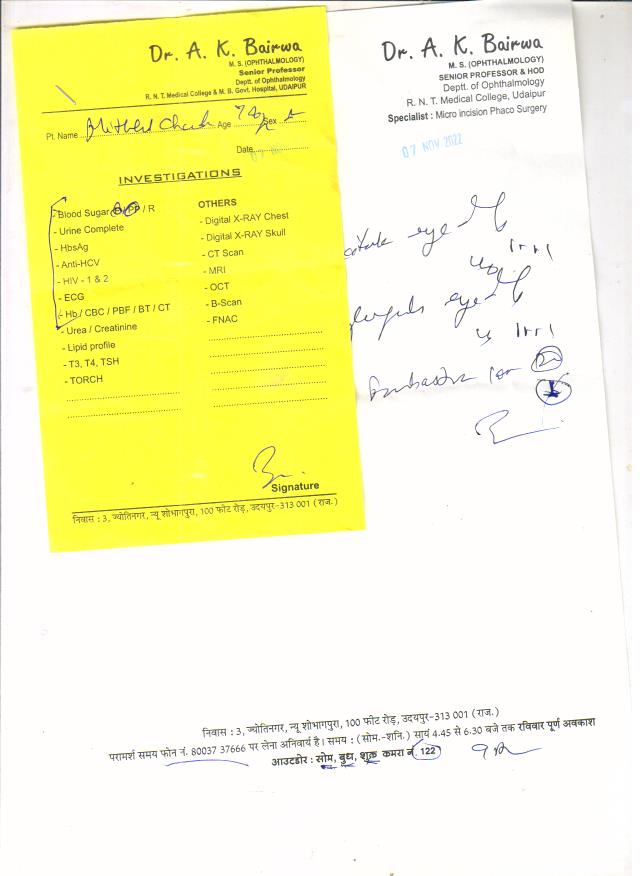 Dr. A. K. Bairwa
M. S. (OPHTHALMOLOGY)
Senior Professor
Deptt. of Ophthalmology
R. N. T. Medical College & M. B. Govt. Hospital, UDAIPUR
Pt. Name Age Sex
Date
07 N
INVESTIGATIONS
- Blood Sugar PP / R
- Urine Complete
- HbsAg
- Anti-HCV
- HIV - 1 & 2
- ECG
- Hb / CBC / PBF / BT / CT
- Urea / Creatinine
- Lipid profile
- T3, T4, TSH
- TORCH
OTHERS
- Digital X-RAY Chest
- Digital X-RAY Skull
- CT Scan
- MRI
- OCT
- B-Scan
- FNAC
Signature
निवास : 3, ज्योतिनगर, न्यू शोभागपुरा, 100 फीट रोड़, उदयपुर-313 001 (राज.)
Dr. A. K. Bairwa
M. S. (OPHTHALMOLOGY)
SENIOR PROFESSOR & HOD
Deptt. of Ophthalmology
R. N. T. Medical College, Udaipur
Specialist : Micro incision Phaco Surgery
07 NOV 2022
eye
eye
निवास : 3, ज्योतिनगर, न्यू शोभागपुरा, 100 फीट रोड़, उदयपुर-313 001 (राज.)
परामर्श समय फोन नं. 80037 37666 पर लेना अनिवार्य है। समय : (सोम.-शनि.) सायं 4.45 से 6.30 बजे तक रविवार पूर्ण अवकाश
आउटडोर : सोम, बुध, शुक्र कमरा नं. 122